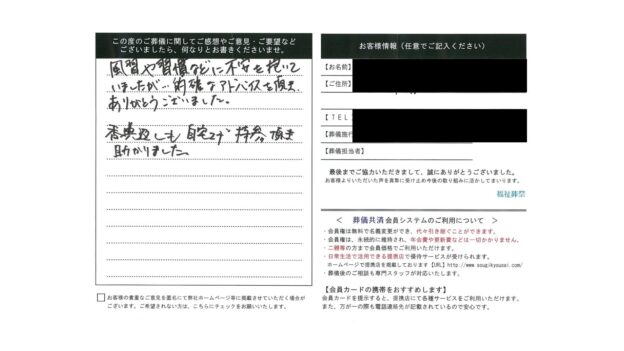 この度のご葬儀に関してご感想やご意見・ご要望など
ございましたら、何なりとお書きくださいませ。
風習や習慣などに不安を抱いて
いましたが…的確なアドバイスを頂き
ありがとうございました。
香典返しも自宅まで持参頂き
助かりました。
お客様の貴重なご意見を匿名にて弊社ホームページ等に掲載させていただく場合が
ございます。ご希望されない方は、こちらにチェックをお願いします。
お客様情報(任意でご記入ください)
【お名前】
【ご住所】
【TEL】
【葬儀施行
【葬儀担当者】
最後までご協力いただきまして、誠にありがとうございました。
お客様よりいただいた声を真摯に受け止め今後の取り組みに活かしてまいります。
福祉葬祭
< 葬儀共済 会員システムのご利用について >
・会員権は無料で名義変更ができ、代々引き継ぐことができます。
・会員権は、永続的に維持され、年会費や更新費などは一切かかりません。
・二親等の方まで会員価格でご利用いただけます。
・日常生活で活用できる提携店で優待サービスが受けられます。
ホームページで提携店を掲載しております【URL】http://www.sougikyousai.com/
・葬儀後のご相談も専門スタッフが対応いたします。
【会員カードの携帯をおすすめします】
会員カードを提示すると、提携店にて各種サービスをご利用いただけます。
また、万が一の際も電話連絡先が記載されているので安心です。